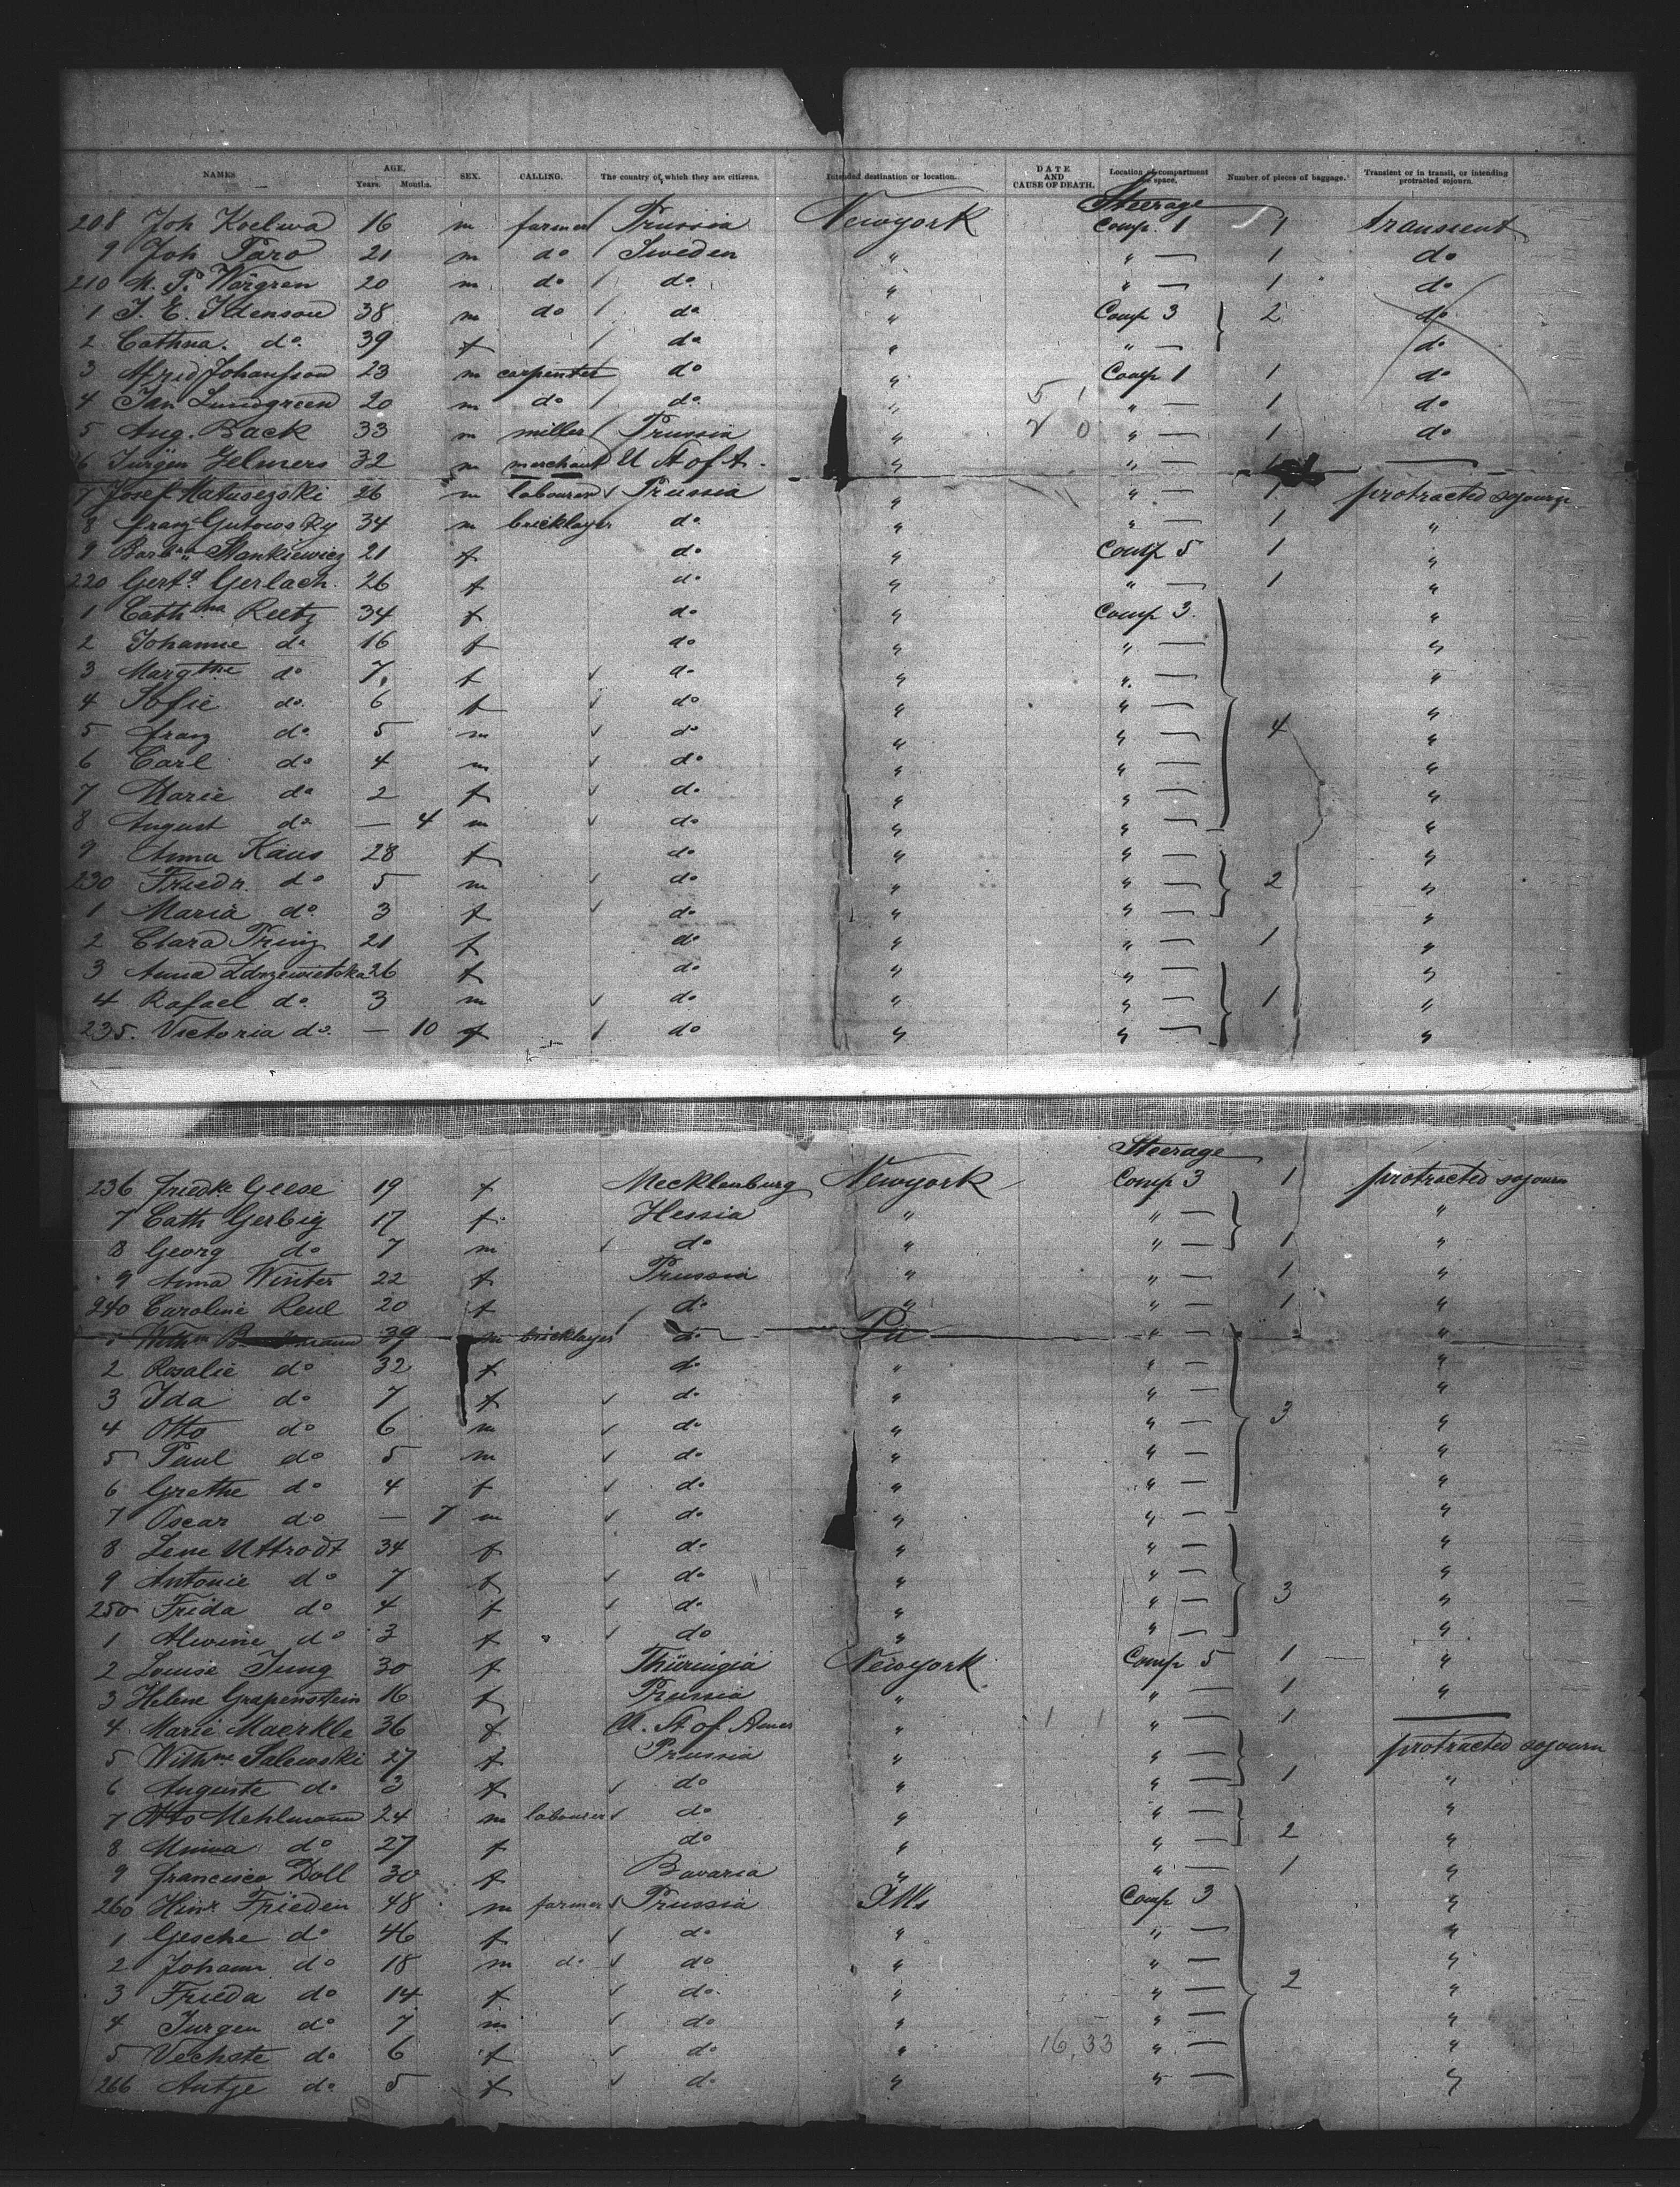 NAMES. AGE. Years. Months. SEX. CALLING. The country of which they are citizens. Intended destination or location. DATE AND CAUSE OF DEATH. Location of compartment or space. Number of pieces of baggage. Transient or in transit, or intending protracted sojourn.
Steerage
208 Joh Koelwa 16 m farmer Prussia Newyork Comp. 1 1 transient
9 Joh Paro 21 m do Sweden " " — 1 do
210 M. P. Wärgren 20 m do do " " — 1 do
1 J. E. Idenson 38 m do do " Comp 3 2 do
2 Cathna. do 39 f do " " — do
3 Alfrid Johansson 23 m carpenter do " Comp 1 1 do
4 Jan Lundgreen 20 m do do " 5 " — 1 do
5 Aug. Back 33 m miller Prussia " 2 0 " — 1 do
6 Jürgen Helmers 32 m merchant U St of A. " " — —
7 Josef Matuszeski 26 m labourer Prussia " " — 1 protracted sojourn
8 Franz Gutowsky 34 m bricklayer do " " — 1 "
9 Barbra Stankiewicz 21 f do " Comp 5 1 "
220 Gertd Gerlach 26 f do " " — 1 "
1 Cathna Reetz 34 f do " Comp 3. "
2 Johanne do 16 f do " " — "
3 Margthe do 7 f do " " — "
4 Sofie do 6 f do " " — "
5 Franz do 5 m do " " — 4 "
6 Carl do 4 m do " " — "
7 Marie do 2 f do " " — "
8 August do — 4 m do " " — "
9 Anna Kaus 28 f do " " — "
230 Friedr. do 5 m do " " — 2 "
1 Maria do 3 f do " " — "
2 Clara Prinz 21 f do " " — 1 "
3 Anna 26 f do " " — "
4 Rafael do 3 m do " " — 1 "
235. Victoria do. — 10 f do " " — "
Steerage
236 Friedke Geese 19 f Mecklenburg Newyork Comp 3 1 protracted sojourn
7 Cath Gerbig 17 f Hessia " " — "
8 Georg do 7 m do " " — 1 "
9 Anna Winter 22 f Prussia " " — 1 "
240 Caroline Reul 20 f do " " — 1 "
1 39 m bricklayer do Pa " — "
2 Rosalie do 32 f do " " — "
3 Ida do 7 f do " " — "
4 Otto do 6 m do " " — 3 "
5 Paul do 5 m do " " — "
6 Grethe do 4 f do " " — "
7 Oscar do — 7 m do " " — "
8 Lene Uttrodt 34 f do " " — "
9 Antonie do 7 f do " " — "
250 Frida do 4 f do " " — 3 "
1 Alwine do 3 f do " " — "
2 Louise Jung 30 f Thüringia Newyork Comp 5 1 "
3 Helene Grapenstein 16 f Prussia " " — 1 "
4 Marie Maerkle 36 f U. St of Amer " 1 1 " — 1 —
5 Wilhme Salewski 27 f Prussia " " — protracted sojourn
6 Auguste do 3 f do " " — 1 "
7 Otto Mehlmann 24 m labourer do " " — "
8 Minna do 27 f do " " — 2 "
9 Francisca Doll 30 f Bavaria " " — 1 "
260 Hinr Frieden 48 m farmer Prussia Ills Comp 3 "
1 Gesche do 46 f do " " — "
2 Johann do 18 m do do " " — "
3 Frieda do 14 f do " " — 2 "
4 Jurgen do 7 m do " " — "
5 Vechste do 6 f do " 16,33 " — "
266 Antje do 5 f do " " — "